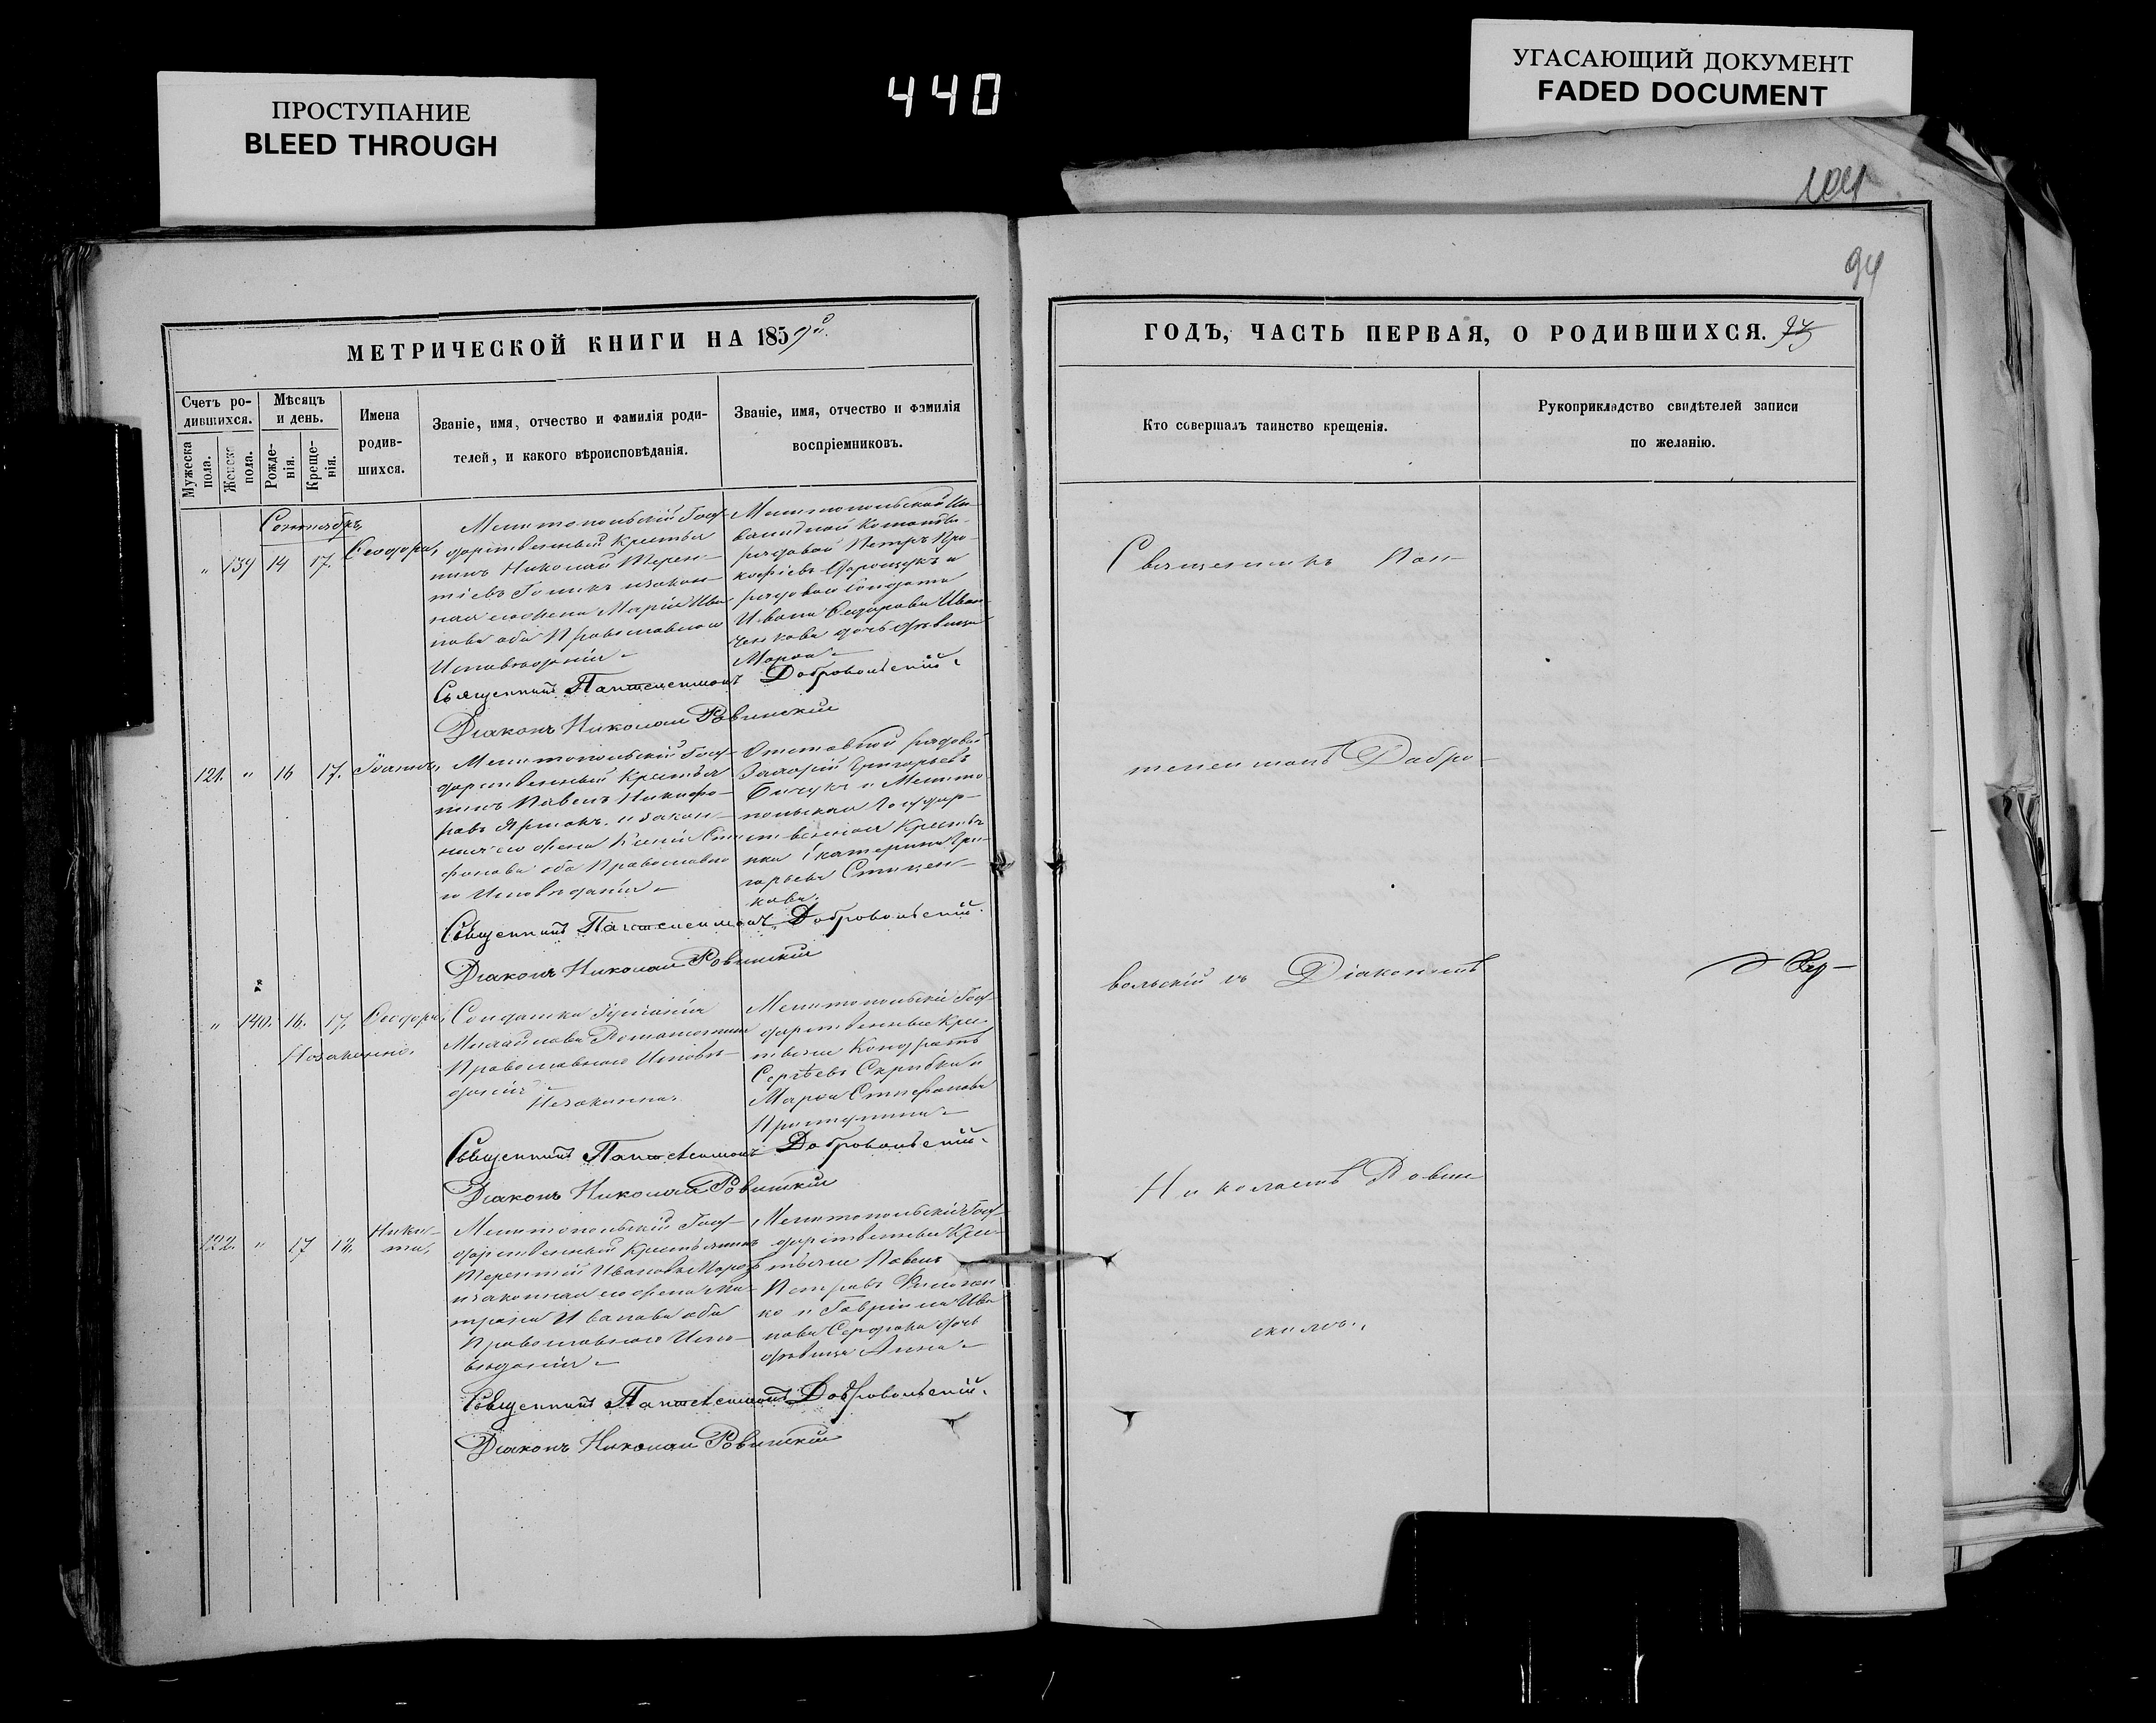 ПРОСТУПАНИЕ
BLEED THROUGH
440
УГАСАЮЩИЙ ДОКУМЕНТ
FADED DOCUMENT
94
МЕТРИЧЕСКОЙ КНИГИ НА 1859й.
Счетъ ро-
дившихся.
Мужеска
пола.
Женска
пола.
Мѣсяцъ
и день.
Рожде-
нія.
Креще-
нія.
Имена
родив-
шихся.
Званіе, имя, отчество и фамилія роди-
телей, и какого вѣроисповѣданія.
Званіе, имя, отчество и фамилія
воспріемниковъ.
Сентябрь
" 139 14 17. Ѳеодора,
Мелитопольскій Госу-
дарственный Крестья
нинъ Николай Терен-
тіевъ Гопикъ и закон-
ная его жена Марія Ива
нова оба Православнаго
Исповѣданія
Мелитопольской Ин-
валидной Команды
рядовой Петръ Про-
кофіевъ и
рядоваго Солдата
Ивана Ѳедорова Иван-
ченкова дочь дѣвица
Марѳа
Священникъ Пантелеимонъ Добровольскій.
Діаконъ Николай Ровинскій
121. " 16 17. Іоаннъ,
Мелитопольскій Госу-
дарственный Крестья
нинъ Павелъ Никифо-
ровъ Ярмакъ. и закон-
ная его жена Ксенія Сте
фанова оба Православна
го Исповѣданія
Отставной рядовой
Захарій Григорьевъ
и Мелито
польская Государ-
ственная Крестьян
ка Екатерина Гри-
горьева Стицен-
кова.
Священникъ Пантелеимонъ Добровольскій.
Діаконъ Николай Ровинскій
" 140. 16. 17. Ѳеодора,
Незаконно.
Солдатка Іуліанія
Михайлова
Православнаго Исповѣ-
данія
Незаконна.
Мелитопольскіе Госу-
дарственные Кре-
стьяне Кондратъ
Сергѣевъ Скрибка и
Марѳа Стефанова
Священникъ Пантелеимонъ Добровольскій.
Діаконъ Николай Ровинскій
122. " 17 18. Ники-
та,
Мелитопольскій Госу-
дарственный Крестьянинъ
Терентій Ивановъ Морозъ
и законная его жена Ма-
трона Иванова оба
Православнаго Испо-
вѣданія
Мелитопольскій Госу-
дарственные Кре-
стьяне Павелъ
Петровъ Филонен
ко и Гавріила Ива
нова Сердюка дочь
дѣвица Анна
Священникъ Пантелеимонъ Добровольскій.
Діаконъ Николай Ровинскій
ГОДЪ, ЧАСТЬ ПЕРВАЯ, О РОДИВШИХСЯ.
Кто совершалъ таинство крещенія.
Рукоприкладство свидѣтелей записи
по желанію.
Священникъ Пан-
телеимонъ Добро-
вольскій съ Діакономъ
Николаемъ Ровин-
скимъ.